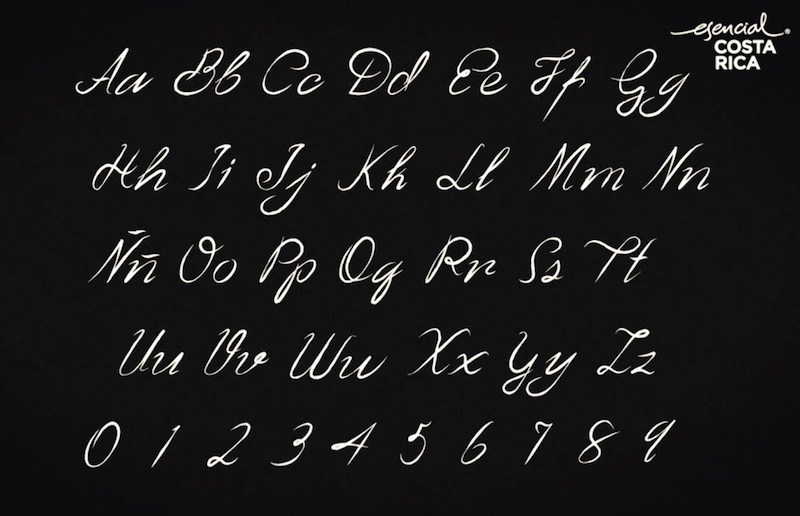 esencial
COSTA
RICA
Aa Bb Cc Dd Ee Ff Gg
Hh Ii Jj Kk Ll Mm Nn
Ññ Oo Pp Qq Rr Ss Tt
Uu Vv Ww Xx Yy Zz
0 1 2 3 4 5 6 7 8 9